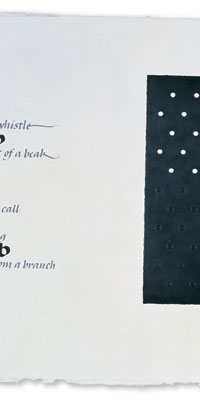 whistle
of a beak
call
b
om a branch